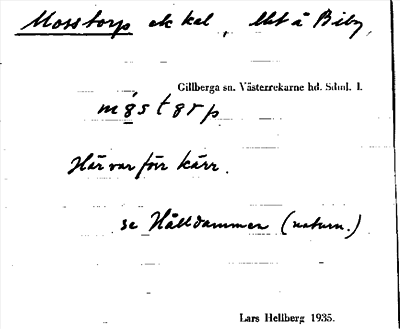 Mosstorp ek kal, lht å Biby,
Gillberga sn. Västerrekarne hd. Sdml. l.
Här var förr kärr.
se Hålldammen (naturn.)
Lars Hellberg 1935.